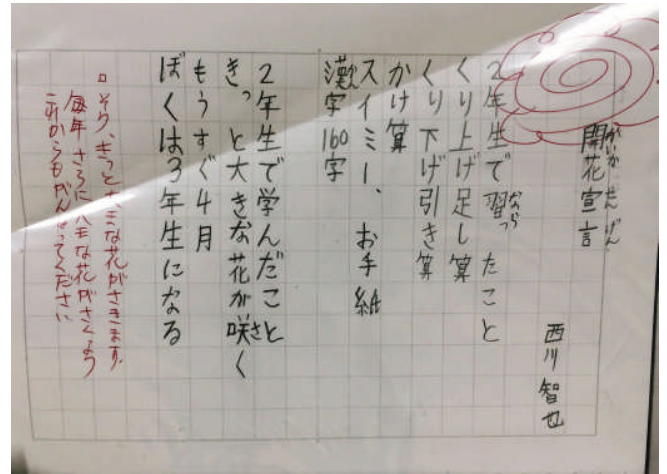 開花宣言
かいかせんげん
西川智也
2年生で習ったこと
なら
くり上げ足し算
くり下げ引き算
かけ算
スイミー、お手紙
漢字160字
2年生で学んだこと
きっと大きな花が咲く
さ
もうすぐ4月
ぼくは3年生になる
きっと大きな花がさきます。
毎年さらに大きな花がさくよう
これからもがんばってください